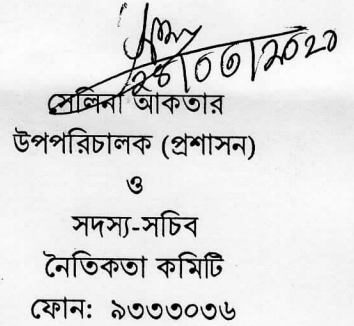 ২৪/০৩/২০২০
সেলিনা আকতার
উপপরিচালক (প্রশাসন)
ও
সদস্য-সচিব
নৈতিকতা কমিটি
ফোন: ৯৩৩৩০৩৬